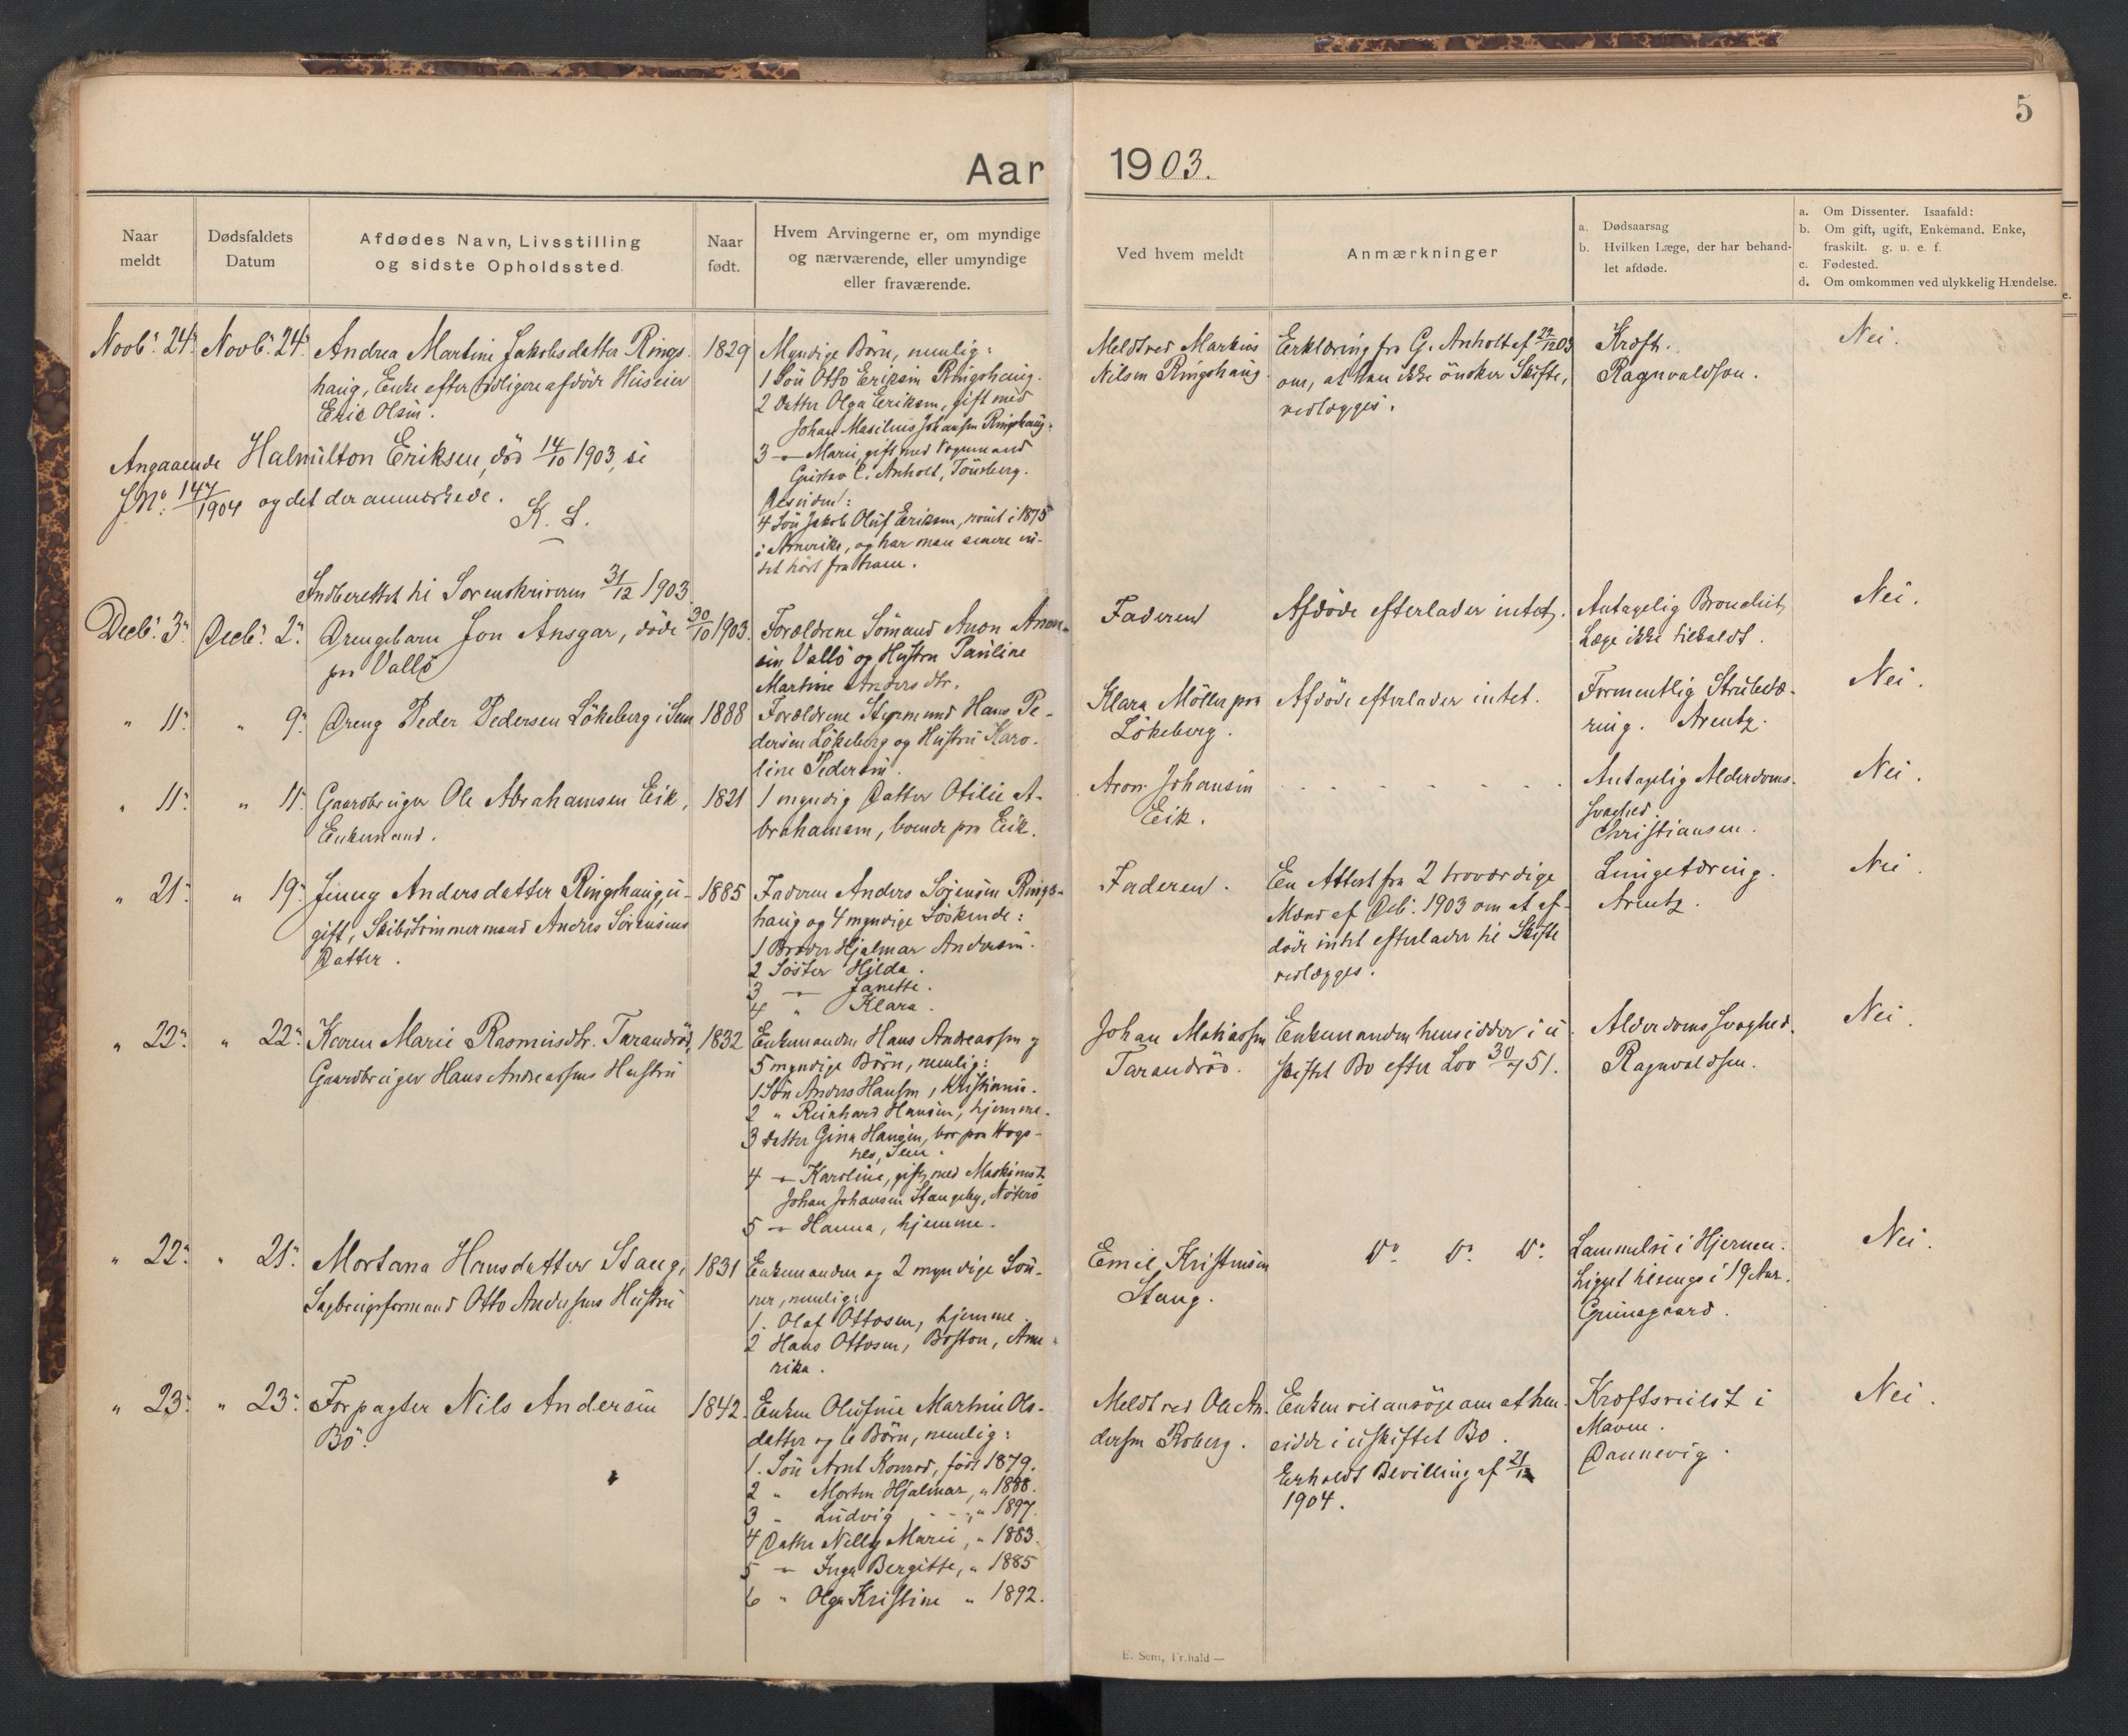 5
Aar 1903.
Naar meldt
Dødsfaldets Datum
Afdødes Navn, Livsstilling og sidste Opholdssted.
Naar født.
Hvem Arvingerne er, om myndige og nærværende, eller umyndige eller fraværende.
Ved hvem meldt
Anmærkninger
a. Dødsaarsag
b. Hvilken Læge, der har behandlet afdøde.
a. Om Dissenter. Isaafald:
b. Om gift, ugift, Enkemand, Enke, fraskilt. g. u. e. f.
c. Fødested.
d. Om omkommen ved ulykkelig Hændelse.
Novbr. 24. Novbr. 24. Andrea Martine Jakobsdatter Rings-
haug, Enke efter tidligere afdöde Huseier
Eric Olsen.
1829
Myndige Börn, nemlig:
1 Sön Otto Eriksen Ringshaug.
2 Datter Olga Eriksen, gift med
Johan Masilius Johansen Ringshaug.
3 — Marie, gift med Vognmand
Gustav C. Anholt, Tönsberg.
Desuden:
4 Sön Jakob Oluf Eriksen, reist i 1875
i Amerika, og har man senere in-
tet hört fra ham.
Meldt ved Markus
Nilsen Ringshaug.
Erklæring fra G. Anholt af 22/12 03
om, at han ikke önsker Skifte,
vedlægges.
Kræft.
Ragnvaldson.
Nei.
Angaaende Halmilton Eriksen, död 14/10 1903, se
J.No. 147/1904 og det der anmærkede.
K. L.
Indberettet til Sorenskriveren 31/12 1903.
Decbr. 3. Decbr. 2. Drengebarn Jon Ansgar, döde
paa Vallö
30/10 1903.
Forældrene Sömand Anon Anon-
sen Vallö og Hustru Pauline
Martine Andersdtr.
Faderen
Afdöde efterlader intet.
Antagelig Bronchit,
Læge ikke tilkaldt.
Nei.
" 11. " 9. Dreng Peder Pedersen Lökeberg i Sem
1888
Forældrene Styrmand Hans Pe-
dersen Lökeberg og Hustru Karo-
line Pedersen.
Klara Möller paa
Lökeberg.
Afdöde efterlader intet.
Formentlig Strubetæ-
ring. Arentz.
Nei.
" 11. " 11. Gaardbruger Ole Abrahamsen Eik,
Enkemand.
1821
1 myndig Datter Otilie A-
brahamsen, boende paa Eik.
Aron Johansen
Eik.
Antagelig Alderdoms-
svaghed.
Christiansen.
Nei.
" 21. " 19. Jenny Andersdatter Ringshaug, u-
gift, Skibstömmermand Anders Sörensens
Datter.
1885
Faderen Anders Sörensen Rings-
haug og 4 myndige Söskende:
1 Broder Hjalmar Andersen.
2 Söster Hilda.
3 — Janette.
4 " Klara.
Faderen.
En Attest fra 2 troværdige
Mænd af Decbr. 1903 om at af-
döde intet efterlader til Skifte
vedlægges.
Lungetæring.
Arentz.
Nei.
" 22. " 22. Karen Marie Rasmusdtr. Tarandröd,
Gaardbruger Hans Andreassens Hustru
1832
Enkemanden Hans Andreassen og
5 myndige Börn, nemlig:
1 Sön Anders Hansen, Kristiania.
2 " Reinhard Hansen, hjemme.
3 Datter Gina Hansen, bor paa Hogs-
nes, Sem.
4 — Karoline, gift med Maskinist
Johan Johansen Stangeby, Nöterö
5 — Hanna, hjemme.
Johan Matiassen
Tarandröd.
Enkemanden hensidder i u-
skiftet Bo efter Lov 30/7 51.
Alderdomssvaghed.
Ragnvaldsen.
Nei.
" 22. " 21. Mortana Hansdatter Stang,
Sagbrugsformand Otto Andersens Hustru
1831
Enkemanden og 2 myndige Sön-
ner, nemlig:
1. Olaf Ottosen, hjemme.
2 Hans Ottosen, Boston, Ame-
rika.
Emil Kristensen
Stang.
Do Do Do
Lammelse i Hjernen.
Ligget tilsengs i 19 Aar.
Grimsgaard.
Nei.
" 23. " 23. Forpagter Nils Andersen
Bö.
1842.
Enken Olufine Martine Ols-
datter og 6 Börn, nemlig:
1. Sön Arnt Konrad, födt 1879.
2 " Morten Hjalmar, " 1888.
3 " Ludvig " 1897.
4 Datter Nelly Marie, " 1883.
5 — Inga Bergitte, " 1885
6 " Olga Kristine " 1892.
Meldt ved Ole An-
dersen Roberg.
Enken vil ansöge om at hen-
sidde i uskiftet Bo.
Erholdt Bevilling af
1904.
Kræftsvulst i
Maven.
Dannevig.
Nei.
E. Sem, Fr.hald —